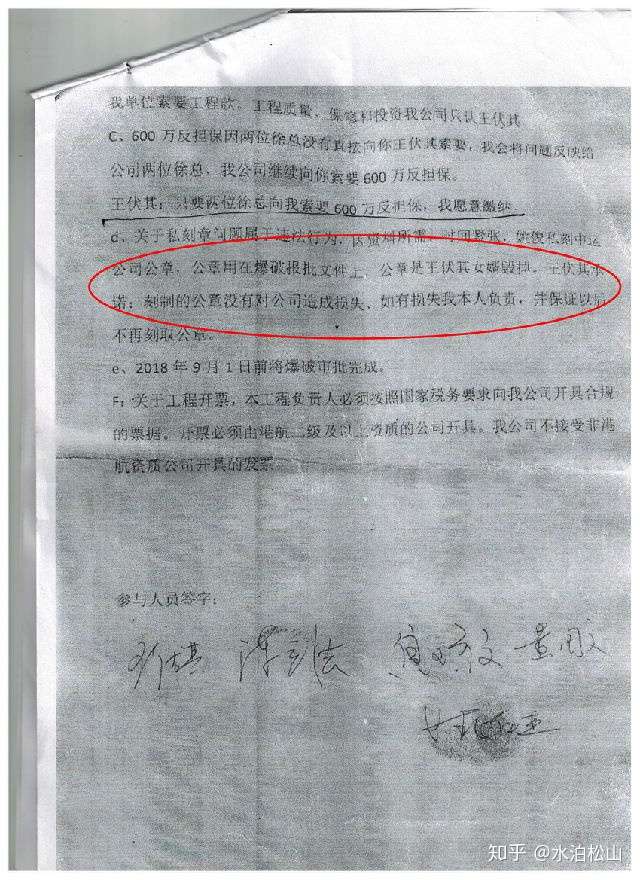 我单位索要工程款。工程质量，保
投资我公司只认王伏其
C、600万反担保因两位徐总没有直接向你王伏其索要，我会将问题反映给
公司两位徐总，我公司继续向你索要600万反担保。
王伏其：只要两位徐总向我索要600万反担保，我愿意缴纳
d、关于私刻章问题属于违法行为，因资料所需，时间紧张，
私刻中
公司公章，公章用在爆破报批文件上，公章是王伏其女婿毁掉。王伏其承
诺：刻制的公章没有对公司造成损失、如有损失我本人负责，并保证以后
不再刻取公章。
e、2018年9月1日前将爆破审批完成。
F：关于工程开票，本工程负责人必须按照国家税务要求向我公司开具合规
的票据。开票必须由港航二级及以上资质的公司开具。我公司不接受非港
航资质公司开具的发票
参与人员签字：
知乎 @水泊松山